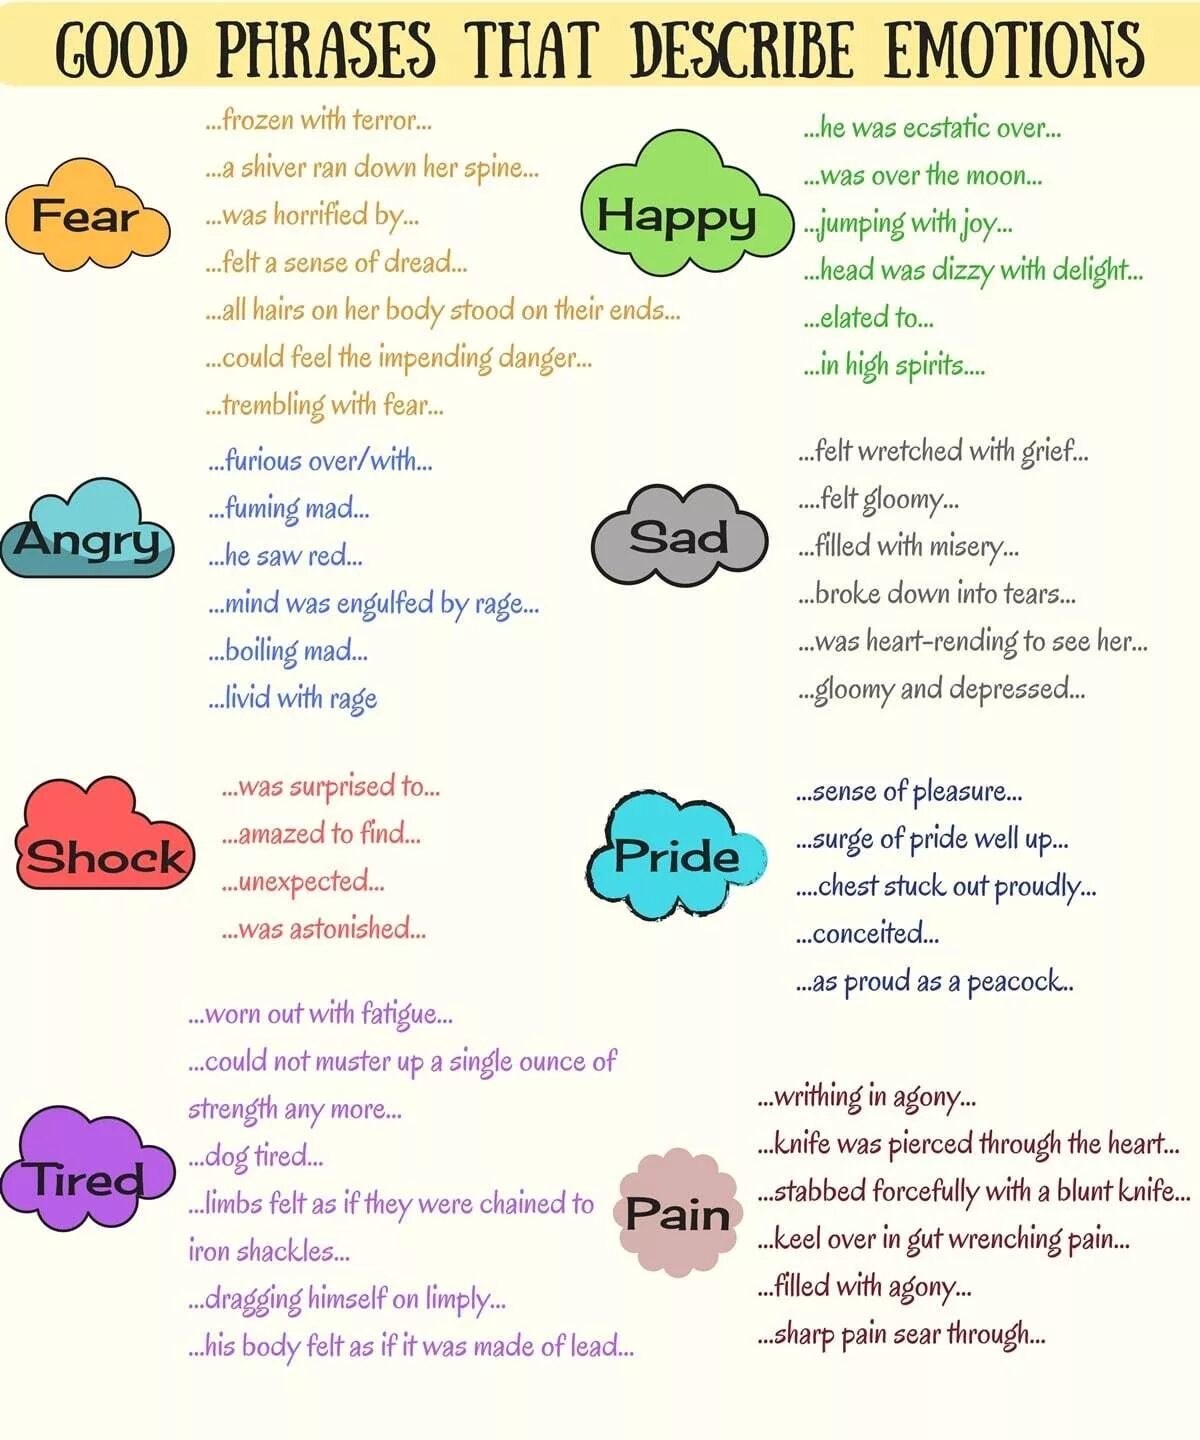 GOOD PHRASES THAT DESCRIBE EMOTIONS
Fear
...frozen with terror...
...a shiver ran down her spine...
...was horrified by...
...felt a sense of dread...
...all hairs on her body stood on their ends...
...could feel the impending danger...
...trembling with fear...
Happy
...he was ecstatic over...
...was over the moon...
...jumping with joy...
...head was dizzy with delight...
...elated to...
...in high spirits....
Angry
...furious over/with...
...fuming mad...
...he saw red...
...mind was engulfed by rage...
...boiling mad...
...livid with rage
Sad
...felt wretched with grief...
....felt gloomy...
...filled with misery...
...broke down into tears...
...was heart-rending to see her...
...gloomy and depressed...
Shock
...was surprised to...
...amazed to find...
...unexpected...
...was astonished...
Pride
...sense of pleasure...
...surge of pride well up...
....chest stuck out proudly...
...conceited...
...as proud as a peacock...
Tired
...worn out with fatigue...
...could not muster up a single ounce of
strength any more...
...dog tired...
...limbs felt as if they were chained to
iron shackles...
...dragging himself on limply...
...his body felt as if it was made of lead...
Pain
...writhing in agony...
...knife was pierced through the heart...
...stabbed forcefully with a blunt knife...
...keel over in gut wrenching pain...
...filled with agony...
...sharp pain sear through...